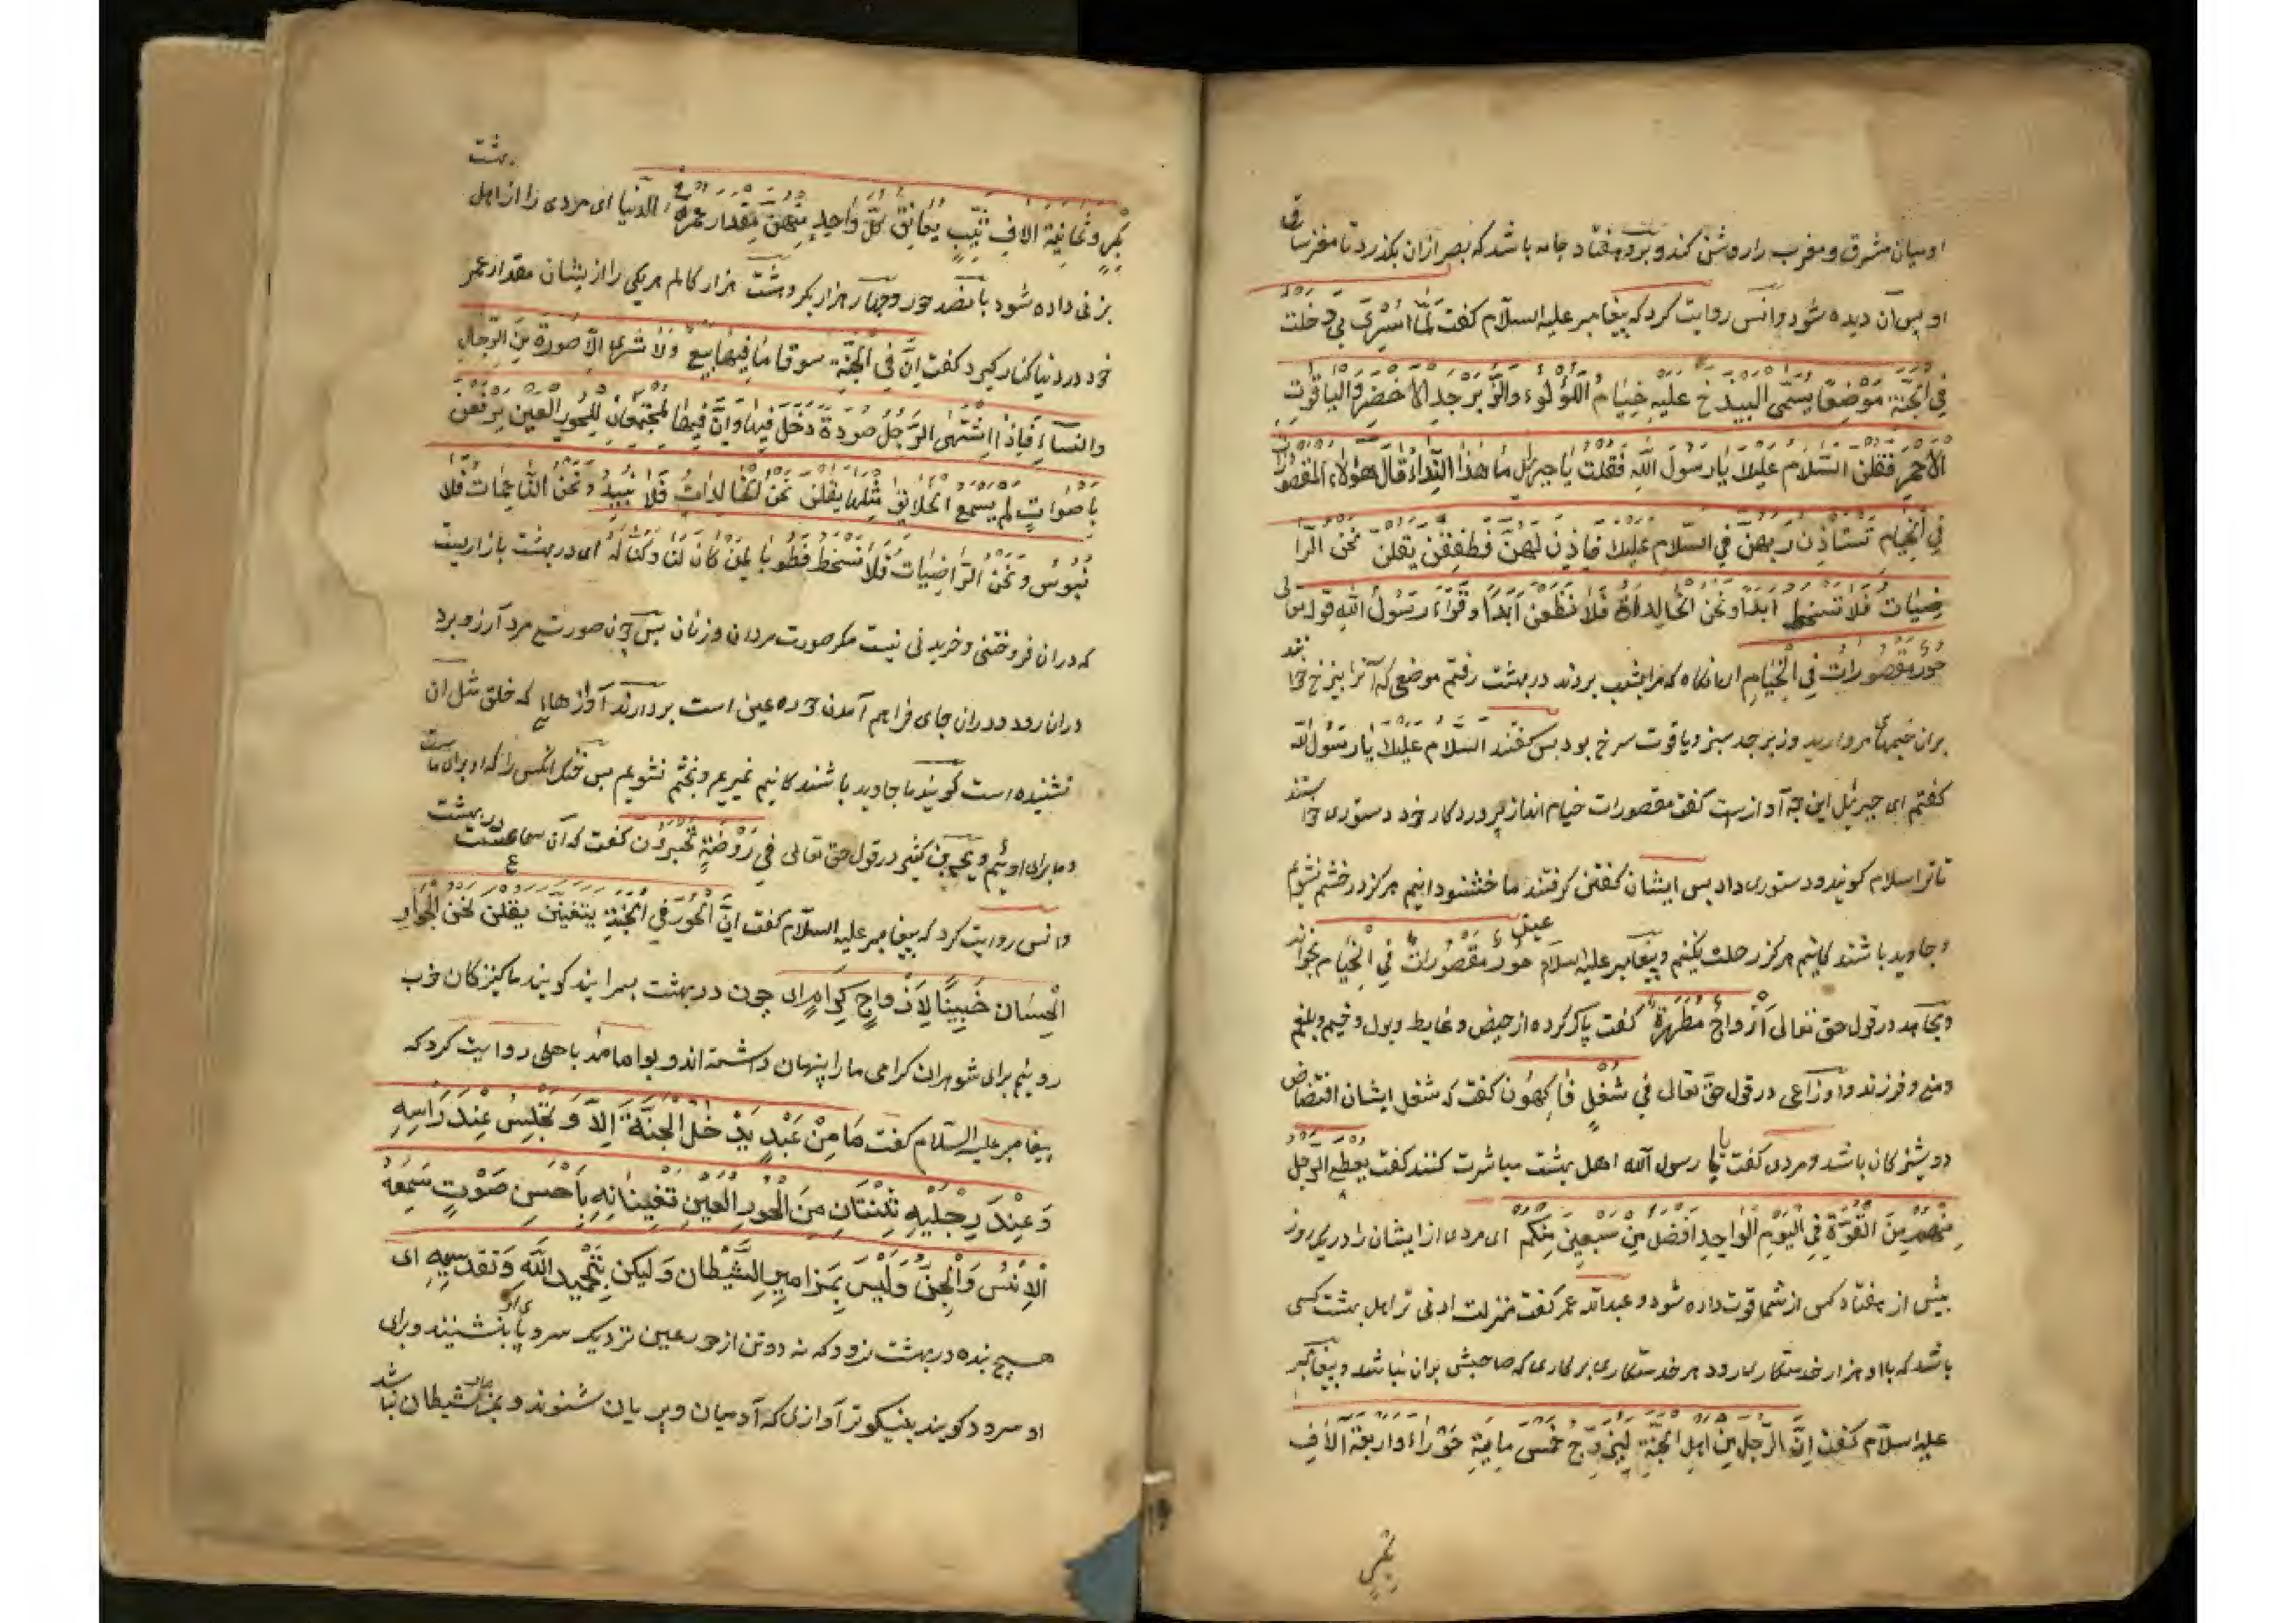 او میان مشرق و مغرب را روشن کند و برو هفتاد جامه باشد که بصر ازان بکذرد تا مغز ساق
او پس آن دیده شود و انس روایت کرد که پیغامبر علیه السلام کفت لَمَّا اُسْرِیَ بِی دخلت
فِی الجَنَّةِ مَوْضِعًا یُسَمّی البیدخ علیه خِیَامُ اللؤلوء والزَّبَرْجَدِ الاَخضَرِ والیاقوتِ
الاَحْمَرِ فقلن السَّلام علیك یا رسول الله فقلت یا جبرئل ما هذا النِّداء قال هؤلاء المقصورات
فِی الخِیام تستأذن ربهنّ فی السّلام علیك فاذِن لهنّ فطفقن یقلن نحن الرّا
ضیات فلا نسخط ابدًا ونحن الخالداة فلا نظعن اَبدًا وقراء رسول الله قوله تعالی
حور مقصورات فِی الخیام ای انکاه که مرا بشب بردند در بهشت رفتم موضعی که آنرا بیزخ خوانند
بران خیمهای مروارید و زبرجد سبز و یاقوت سرخ بود پس کفتند السَّلام علیك یا رسول الله
کفتم ای جبرئیل این چه آوازست کفت مقصورات خیام اند از پروردکار خود دستوری خواستند
تا ترا سلام کویند و دستوری داد پس ایشان کفتن کرفتند ما خشنودانیم هرکز در خشم نشویم
و جاوید باشند کانیم هرکز رحلت نکنیم و پیغامبر علیه السلام حُورٌ مَقْصُوراتٌ فِی الخِیَام بخواند
و مجاهد در قول حق تعالی اَزْوَاجٌ مُطَهَّرَةٌ کفت پاک کرده از حیض و غایط و بول و خیم و بلغم
و منی و فرزند و اوزاعی در قول حق تعالی فِی شُغُلٍ فاکِهُون کفت که شغل ایشان افتضاض
دوشیزکان باشد و مردی کفت یا رسول الله اهل بهشت مباشرت کنند کفت یعطی الرجل
مِنْهُمْ مِنَ القُوَّةِ فِی الیَوْمِ الوَاحِدِ افضل مِنْ سَبْعِینَ مِنْکم ای مردی از ایشان را در یک روز
بیش از هفتاد کس از شما قوت داده شود و عبدالله عمر کفت منزلت ادنی تر اهل بهشت کسی
باشد که با او هزار خدمتکاری رود هر خدمتکاری بر کاری که صاحبش بران نباشد و پیغامبر
علیه السلام کفت اِنَّ الرَّجل مِن اهلِ الجَنَّةِ لَیَتَزَوَّجُ خَمْسَ مایَةِ حَوْراءَ واربعة الاف
بِکْرٍ
بهشت
بِکْرٍ و ثمانیة الاف ثَیِّبٍ یُعَانِقُ کلَّ واحِدٍ مِنْهُنَّ مِقْدار عمره الدّنیا ای مردی را از اهل
بزنی داده شود پانصد حور و چهار هزار بکر و هشت هزار کالم هر یکی را از یشان مقدار عمر
خود در دنیا کنار کیرد کفت اِنَّ فِی الجَنَّةِ سوقا ما فیها بیع ولا شری الا صورة مِن الرّجال
والنسآء فاِذا اشتهی الرّجل صورة دخل فیها وانَّ فیها لمجتمعان للحور العین یرفعن
باصواتٍ لم یسمع الخلایق مثلها یقلن نحن الخالدات فلا نبید ونحن الناعمات فلا
نبوس ونحن الراضیات فلا نسخط فطوبا لمن کان لنا وکنا له ای در بهشت بازاریست
که در ان فروختنی و خریدنی نیست مکر صورت مردان و زنان پس چون صورتی مرد آرزو برد
دران رود و دران جای فراهم آمدن حور عین است بردارند آوازهایی که خلق مثل ان
نشنیده است کویند ما جاوید باشند کانیم نمیریم و بخشم نشویم پس خنک انکس را که او برای ماست
و ما برای اوئیم و یحیی بن کثیر در قول حق تعالی فِی رَوْضَةٍ یُحْبَرُون کفت که آن سماعست در بهشت
و انس روایت کرد که پیغامبر علیه السّلام کفت اِنَّ الحُورَ فِی الجَنَّةِ یتغنین یقلن نحن الجوار
الحِسَان خَبِینًا لِاَزْواجٍ کِرَامٍ ای حوران در بهشت بسرایند کویند ما کنیزکان خوب
روئیم برای شوهران کرامی ما را پنهان داشته اند و بوامامه باهلی روایت کرد که
پیغامبر علیه السلام کفت مَا مِنْ عَبْدٍ یَدْخُلُ الجَنَّةَ اِلاَّ وَ یَجْلِسُ عِنْدَ رَاسِهِ
وَ عِنْدَ رِجْلَیْهِ ثِنْتَانِ مِنَ الْحُورِ الْعَیْنِ تغنیانِهِ بِاَحْسَنِ صَوْتٍ سَمِعَهُ
الاِنْسُ وَالْجِنُّ وَلَیْسَ بِمَزامِیرِ الشَّیْطان وَلکِن بِتَحْمِیدِ اللهِ وَتَقْدِیسِهِ ای
هیچ بنده در بهشت نرود که نه دوتن از حور عین نزدیک سر و پای او بنشینند و برای
او سرود کویند بنیکوتر آوازی که آدمیان و پریان شنوند و بمزامیر شیطان نباشد